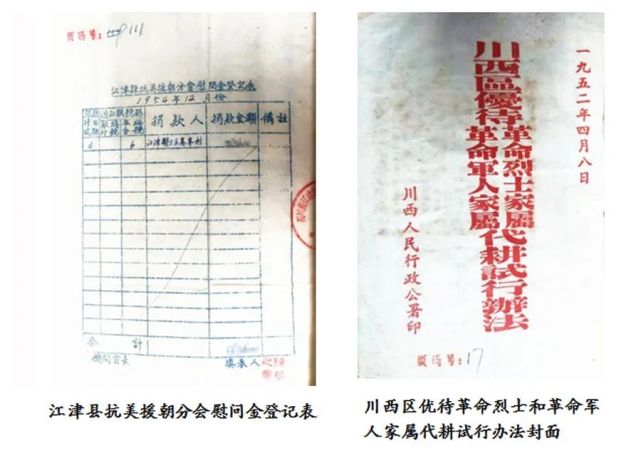 页码号: 111
江津縣抗美援朝分會慰問金登记表
1954年12月份
捐款人
捐款金額
備註
6
6
合計
機関首長
填表人
江津县抗美援朝分会慰问金登记表
一九五二年四月八日
川西區優待革命烈士家屬革命軍人家屬代耕試行辦法
川西人民行政公署印
页码号: 17
川西区优待革命烈士和革命军
人家属代耕试行办法封面